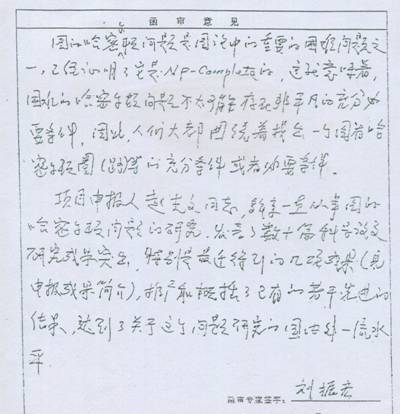 函审意见
图的哈密顿问题是图论中的重要的困难问题之
一,已经证明了它是NP-Complete的,这就意味着,
图的哈密顿问题不太可能存在非平凡的充分必
要条件,因此,人们大都围绕着提出一个图有哈
密顿圈(路)等的充分条件或者必要条件.
项目申报人赵 同志,多年一直从事图的
哈密顿问题的研究,发表了数十篇科学论文
研究成果突出,特别是最近得到的几项成果(见
申报成果简介),推广和概括了已有的若干先进的
结果,达到了关于这个问题研究的国际 一流水
平.
函审专家签字: 刘振宏